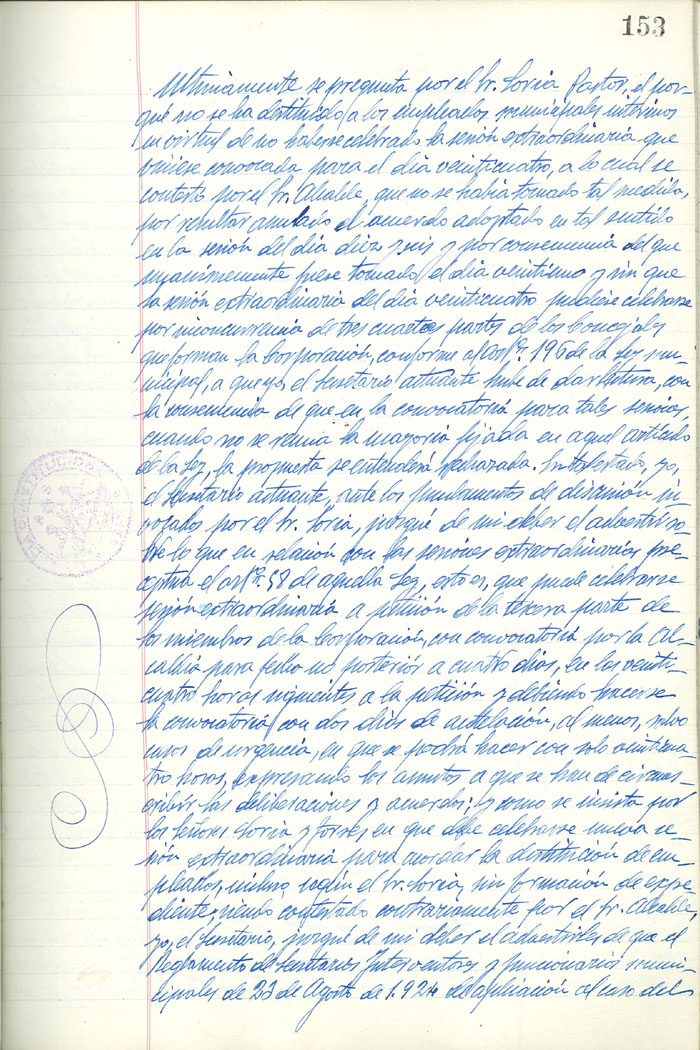 153
Ultimamente se pregunta por el Sr. Soria Pastor, el por-
qué no se ha destituido a los empleados municipales interinos
en virtud de no haberse celebrado la sesión extraordinaria que
viniese convocada para el día veinticuatro, a lo cual se
contestó por el Sr. Alcalde, que no se había tomado tal medida,
por resultar anulado el acuerdo adoptado en tal sentido
en la sesión del día diez y seis y por consecuencia del que
unanimemente fuese tomado el día veintiuno y sin que
la sesión extraordinaria del día veinticuatro pudiese celebrarse
por inconcurrencia de tres cuartas partes de los Concejales
que forman la Corporación, conforme al artº. 196 de la Ley mu-
nicipal, a que yo, el Secretario actuante hube de dar lectura, con
la consecuencia de que en la convocatoria para tales sesiones,
cuando no se reuna la mayoría fijada en aquel artículo
de la Ley, la propuesta se entenderá rechazada. In todo estado, yo,
el Secretario actuante, ante los fundamentos de discusión in-
vocados por el Sr. Soria, porqué de mi deber el advertir so-
bre lo que en relación con las sesiones extraordinarias pre-
ceptua el artº. 58 de aquella Ley, esto es, que puede celebrarse
sesión extraordinaria a petición de la tercera parte de
los miembros de la Corporación, con convocatoria por la Al-
caldía para fecha no posterior a cuatro días, en las veinti-
cuatro horas siguientes a la petición y debiendo hacerse
la convocatoria con dos días de antelación, al menos, salvo
casos de urgencia, en que se podrá hacer con solo veinticua-
tro horas, expresando los asuntos a que se han de circuns-
cribir las deliberaciones y acuerdos; y como se insista por
los Señores Soria y Torres, en que debe celebrarse nueva se-
sión extraordinaria para acordar la destitución de em-
pleados, incluso, según el Sr. Soria, sin formación de expe-
diente, siendo contestado contrariamente por el Sr. Alcalde
yo, el Secretario, porqué de mi deber el advertirles de que el
Reglamento de Secretarios Interventores y funcionarios muni-
cipales de 23 de Agosto de 1.924 de aplicación al caso del